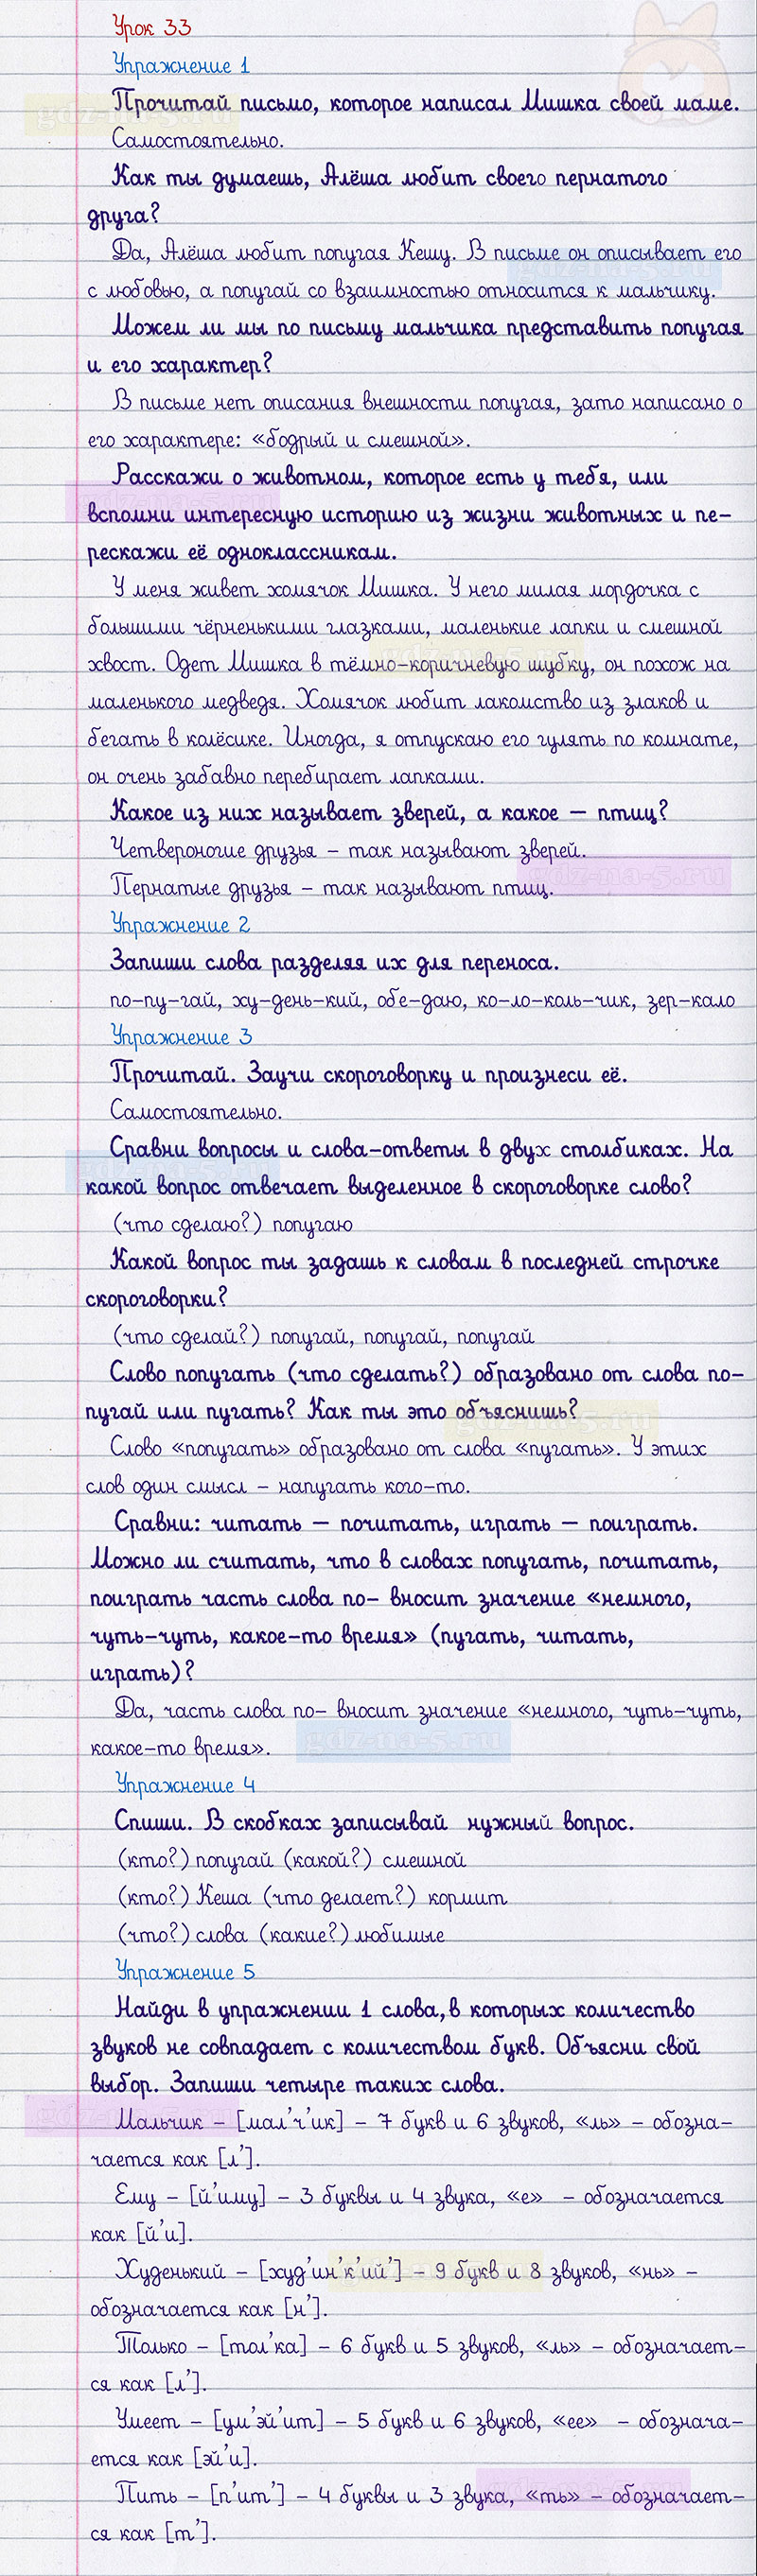 Урок 33
Упражнение 1
Прочитай письмо, которое написал Мишка своей маме.
Самостоятельно.
Как ты думаешь, Алёша любит своего пернатого
друга?
Да, Алёша любит попугая Кешу. В письме он описывает его
с любовью, а попугай со взаимностью относится к мальчику.
Можем ли мы по письму мальчика представить попугая
и его характер?
В письме нет описания внешности попугая, зато написано о
его характере: «бодрый и смешной».
Расскажи о животном, которое есть у тебя, или
вспомни интересную историю из жизни животных и пе-
рескажи её одноклассникам.
У меня живет хомячок Мишка. У него милая мордочка с
большими чёрненькими глазками, маленькие лапки и смешной
хвост. Одет Мишка в тёмно-коричневую шубку, он похож на
маленького медведя. Хомячок любит лакомство из злаков и
бегать в колёсике. Иногда, я отпускаю его гулять по комнате,
он очень забавно перебирает лапками.
Какое из них называет зверей, а какое — птиц?
Четвероногие друзья – так называют зверей.
Пернатые друзья – так называют птиц.
Упражнение 2
Запиши слова разделяя их для переноса.
по-пу-гай, ху-день-кий, обе-даю, ко-ло-коль-чик, зер-кало
Упражнение 3
Прочитай. Заучи скороговорку и произнеси её.
Самостоятельно.
Сравни вопросы и слова-ответы в двух столбиках. На
какой вопрос отвечает выделенное в скороговорке слово?
(что сделаю?) попугаю
Какой вопрос ты задашь к словам в последней строчке
скороговорки?
(что сделай?) попугай, попугай, попугай
Слово попугать (что сделать?) образовано от слова по-
пугай или пугать? Как ты это объяснишь?
Слово «попугать» образовано от слова «пугать». У этих
слов один смысл – напугать кого-то.
Сравни: читать — почитать, играть — поиграть.
Можно ли считать, что в словах попугать, почитать,
поиграть часть слова по- вносит значение «немного,
чуть-чуть, какое-то время» (пугать, читать,
играть)?
Да, часть слова по- вносит значение «немного, чуть-чуть,
какое-то время».
Упражнение 4
Спиши. В скобках записывай нужный вопрос.
(кто?) попугай (какой?) смешной
(кто?) Кеша (что делает?) кормит
(что?) слова (какие?) любимые
Упражнение 5
Найди в упражнении 1 слова, в которых количество
звуков не совпадает с количеством букв. Объясни свой
выбор. Запиши четыре таких слова.
Мальчик – [мал'ч'ик] – 7 букв и 6 звуков, «ль» – обозна-
чается как [л'].
Ему – [й'иму] – 3 буквы и 4 звука, «е» – обозначается
как [й'и].
Худенький – [худ'ин'к'ий'] – 9 букв и 8 звуков, «нь» –
обозначается как [н'].
Только – [тол'ка] – 6 букв и 5 звуков, «ль» – обозначает-
ся как [л'].
Умеет – [ум'эй'ит] – 5 букв и 6 звуков, «ее» – обознача-
ется как [эй'и].
Пить – [п'ит'] – 4 буквы и 3 звука, «ть» – обозначает-
ся как [т'].